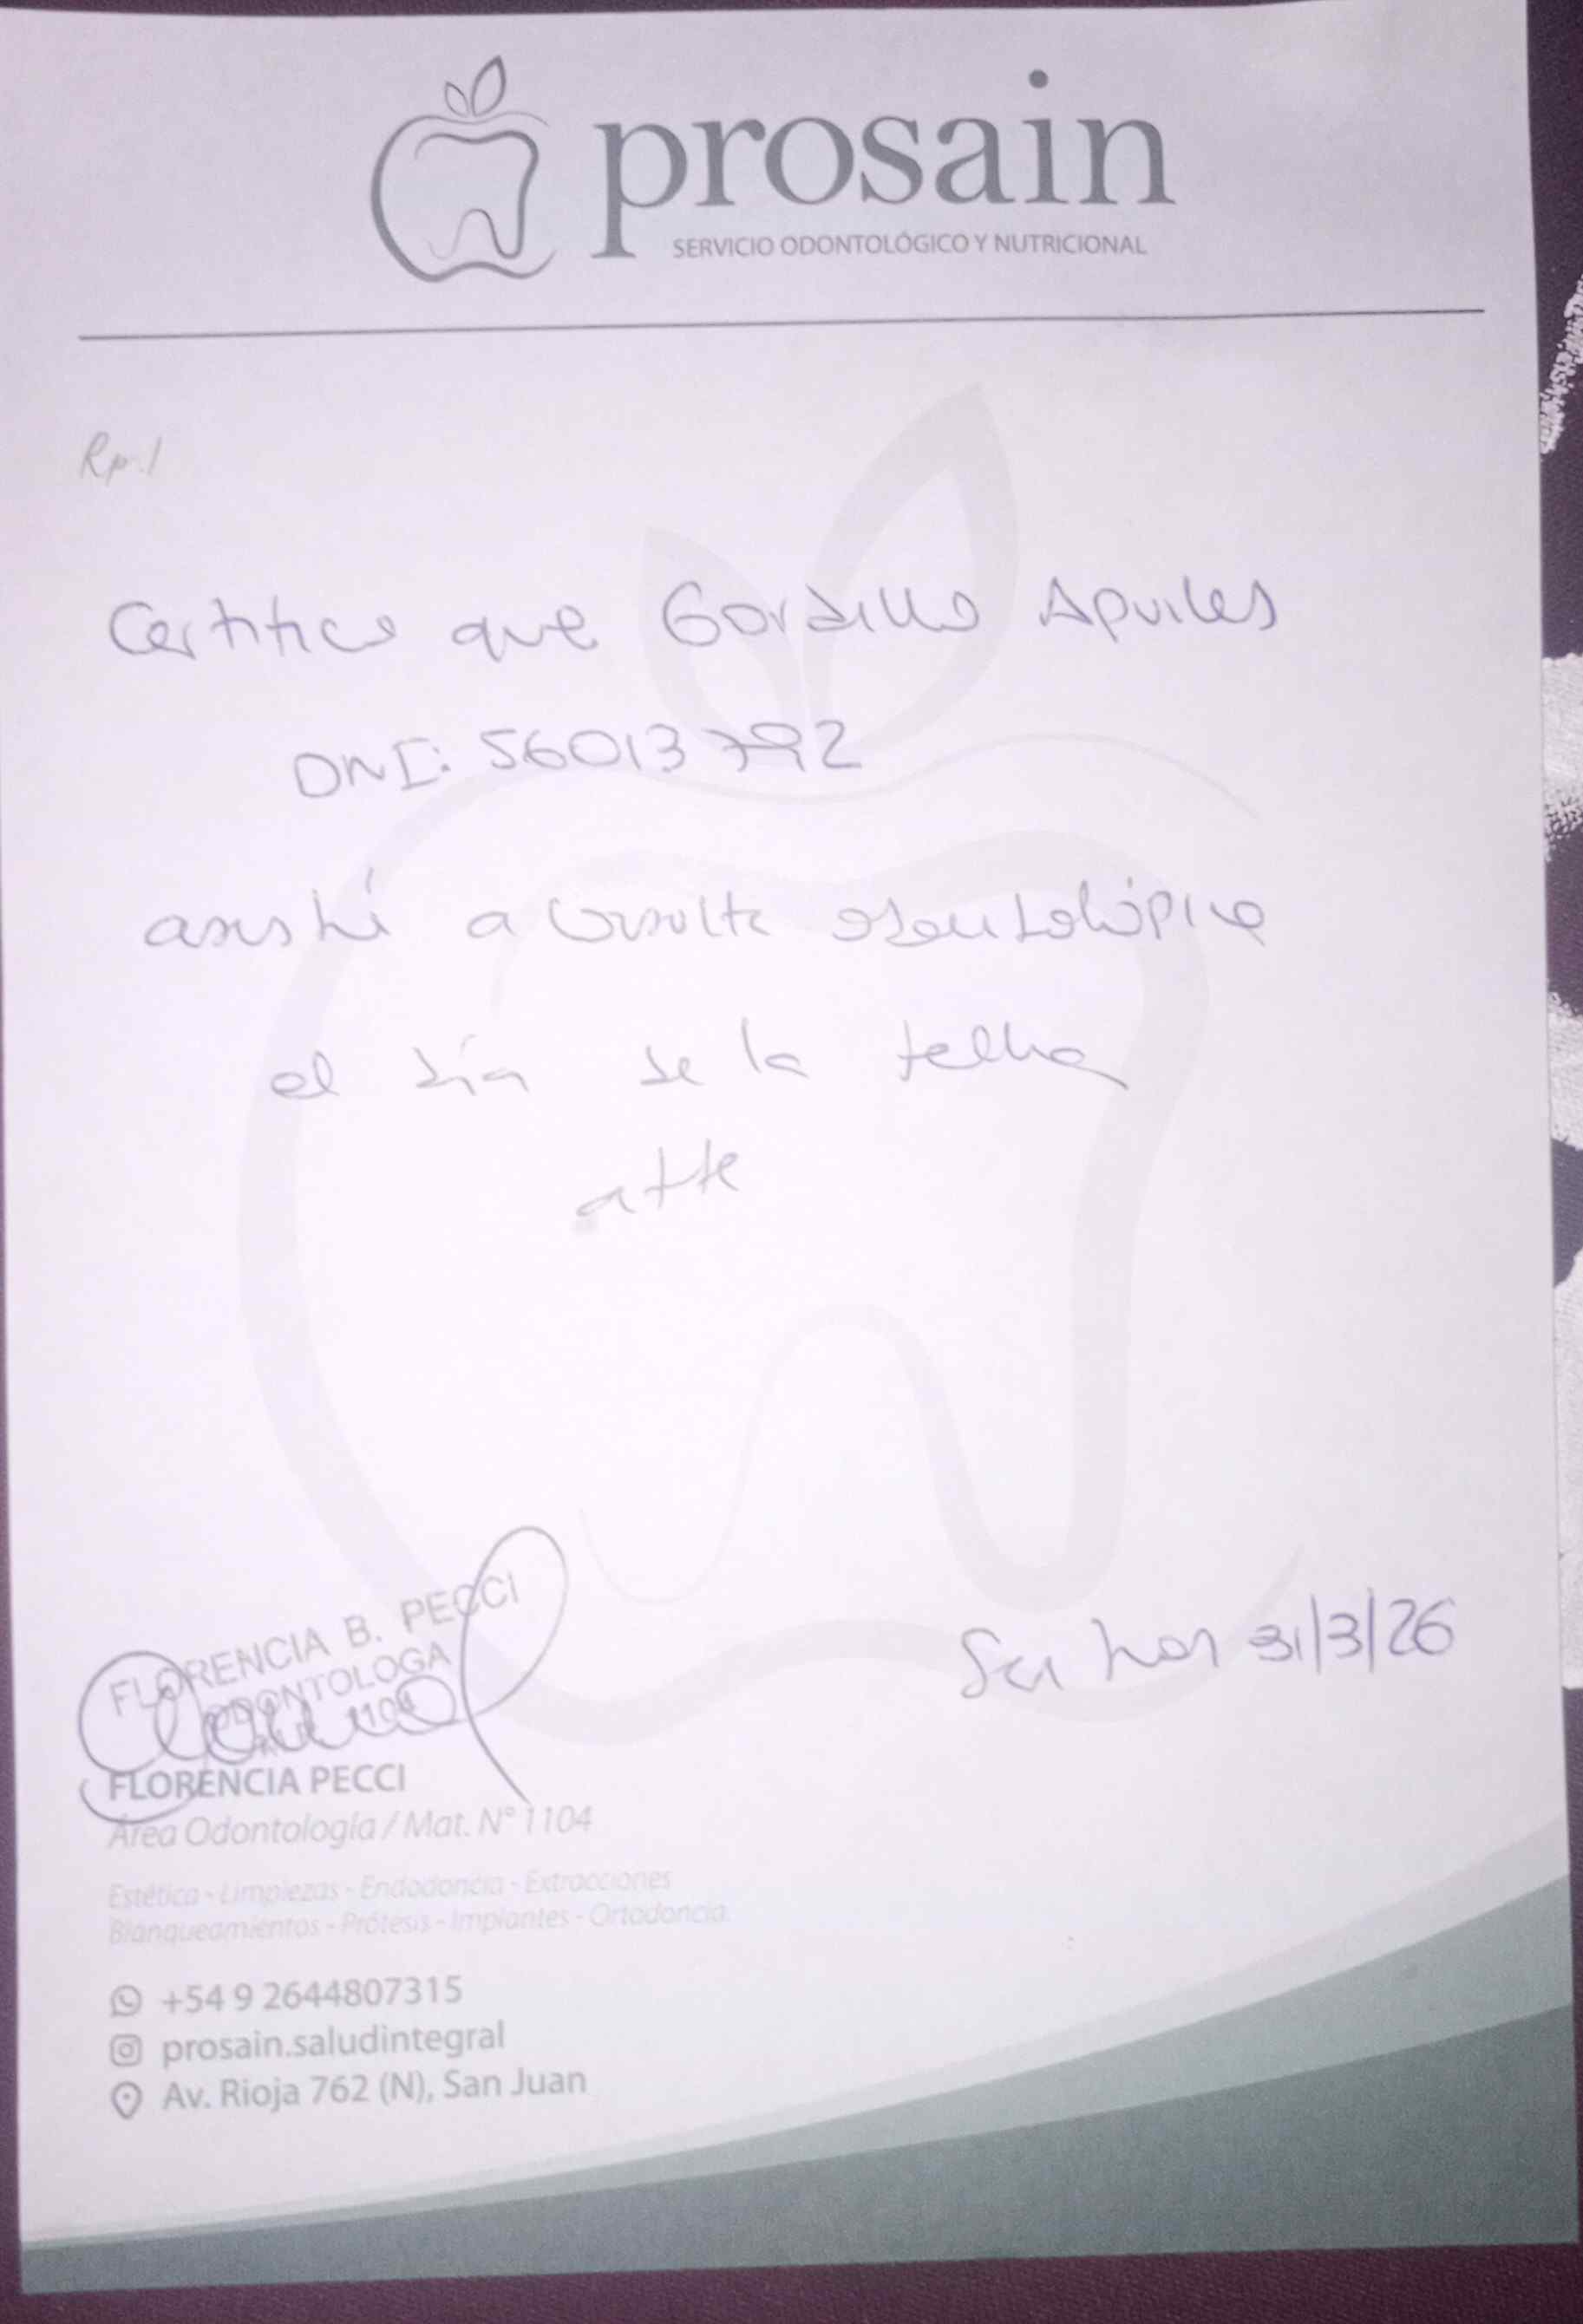 prosain
SERVICIO ODONTOLÓGICO Y NUTRICIONAL
Rp./
Certifico que Gordillo Aquiles
DNI: 56013792
asistió a consulta odontológica
el día de la fecha
atte
FLORENCIA B. PECCI
ODONTOLOGA
1104
San Juan 31/3/26
FLORENCIA PECCI
Área Odontología / Mat. N° 1104
Estética - Limpiezas - Endodoncia - Extracciones
Blanqueamientos - Prótesis - Implantes - Ortodoncia.
+54 9 2644807315
prosain.saludintegral
Av. Rioja 762 (N), San Juan